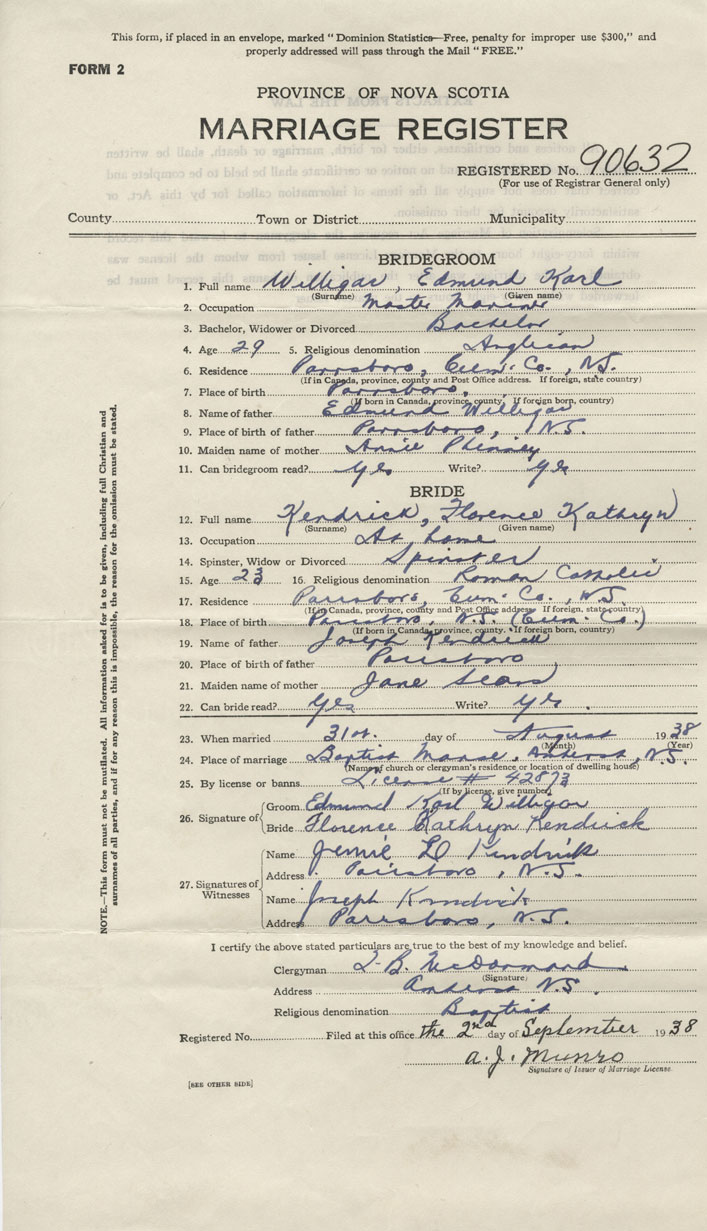 This form, if placed in an envelope, marked "Dominion Statistics—Free, penalty for improper use $300," and
properly addressed will pass through the Mail "FREE."
FORM 2
PROVINCE OF NOVA SCOTIA
MARRIAGE REGISTER
REGISTERED No. 90632
(For use of Registrar General only)
County Town or District Municipality
BRIDEGROOM
1. Full name Willigar, Edmund Karl
(Surname) (Given name)
2. Occupation Master Mariner
3. Bachelor, Widower or Divorced Bachelor
4. Age 29 5. Religious denomination Anglican
6. Residence Parrsboro, Cum. Co., N.S.
(If in Canada, province, county and Post Office address. If foreign, state country)
7. Place of birth Parrsboro,
(If born in Canada, province, county. If foreign born, country)
8. Name of father Edmund Willigar
9. Place of birth of father Parrsboro, N.S.
10. Maiden name of mother Annie Phinney
11. Can bridegroom read? yes Write? yes
BRIDE
12. Full name Kendrick, Florence Kathryn
(Surname) (Given name)
13. Occupation At home
14. Spinster, Widow or Divorced Spinster
15. Age 23 16. Religious denomination Roman Catholic
17. Residence Parrsboro, Cum. Co., N.S.
(If in Canada, province, county and Post Office address. If foreign, state country)
18. Place of birth Parrsboro, N.S. (Cum. Co.)
(If born in Canada, province, county. If foreign born, country)
19. Name of father Joseph Kendrick
20. Place of birth of father Parrsboro
21. Maiden name of mother Jane Sears
22. Can bride read? Yes Write? yes.
23. When married 31st. day of August 1938
(Month) (Year)
24. Place of marriage Baptist Manse, Amherst, N.S.
(Name of church or clergyman's residence or location of dwelling house)
25. By license or banns License # 42873
(If by license, give number)
26. Signature of
Groom Edmund Karl Willigar
Bride Florence Kathryn Kendrick
27. Signatures of Witnesses
Name Jennie D Kendrick
Address Parrsboro, N.S.
Name Joseph Kendrick
Address Parrsboro, N.S.
I certify the above stated particulars are true to the best of my knowledge and belief.
Clergyman McDormand
(Signature)
Address Amherst N.S.
Religious denomination Baptist
Registered No. Filed at this office the 2nd day of September 1938
A. J. Munro
Signature of Issuer of Marriage License.
[SEE OTHER SIDE]
NOTE.—This form must not be mutilated. All information asked for is to be given, including full Christian and
surnames of all parties, and if for any reason this is impossible, the reason for the omission must be stated.